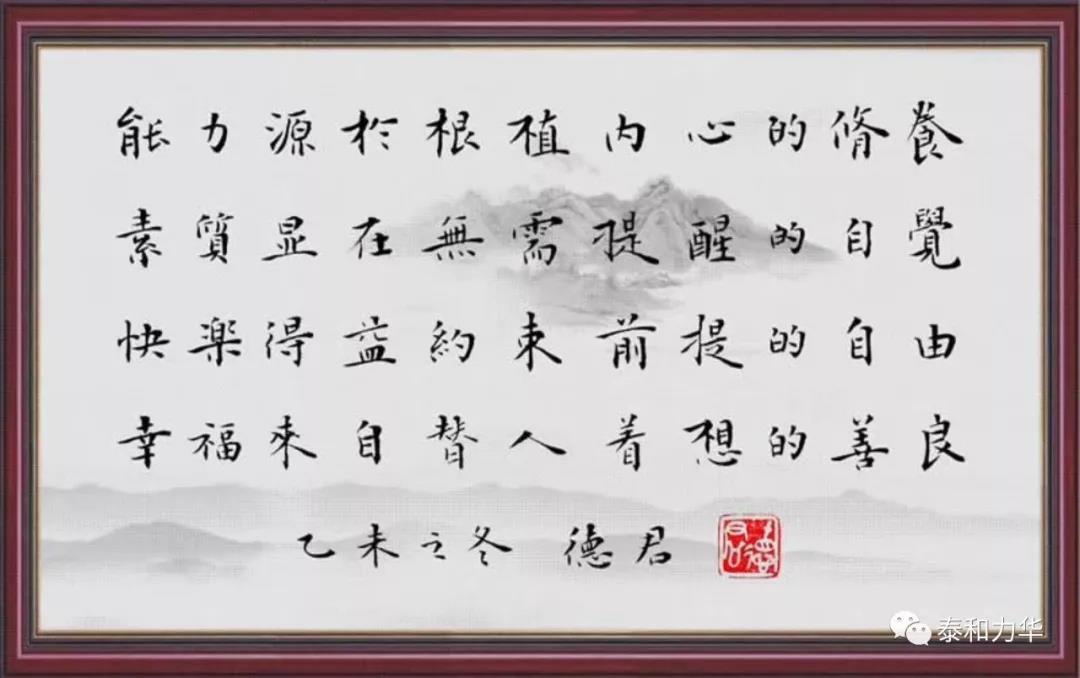 能力源於根植内心的脩養
素質显在無需提醒的自覺
快楽得益約束前提的自由
幸福來自替人着想的善良
乙未之冬 德君
德君
泰和力华